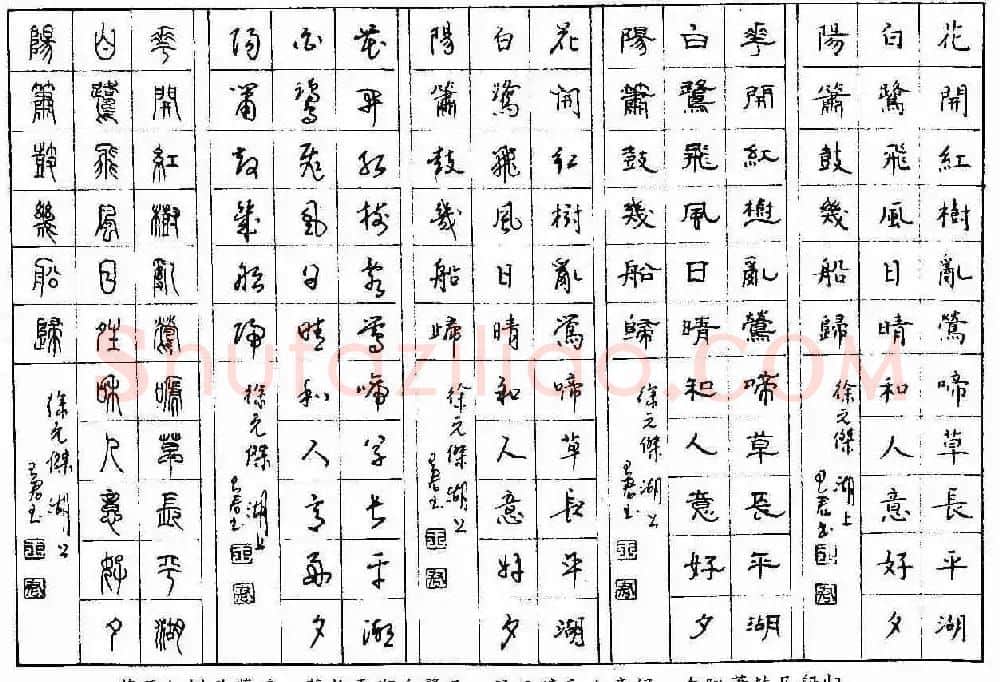 花開紅樹亂鶯啼草長平湖
白鷺飛風日晴和人意好夕
陽簫鼓幾船歸
徐元傑 湖上
花開紅樹亂鶯啼草長平湖
白鷺飛風日晴和人意好夕
陽簫鼓幾船歸
徐元傑 湖上
花開紅樹亂鶯啼草長平湖
白鷺飛風日晴和人意好夕
陽簫鼓幾船歸
徐元傑 湖上
花開紅樹亂鶯啼草長平湖
白鷺飛風日晴和人意好夕
陽簫鼓幾船歸
徐元傑 湖上
花開紅樹亂鶯啼草長平湖
白鷺飛風日晴和人意好夕
陽簫鼓幾船歸
徐元傑 湖上
Shufaziliao.COM